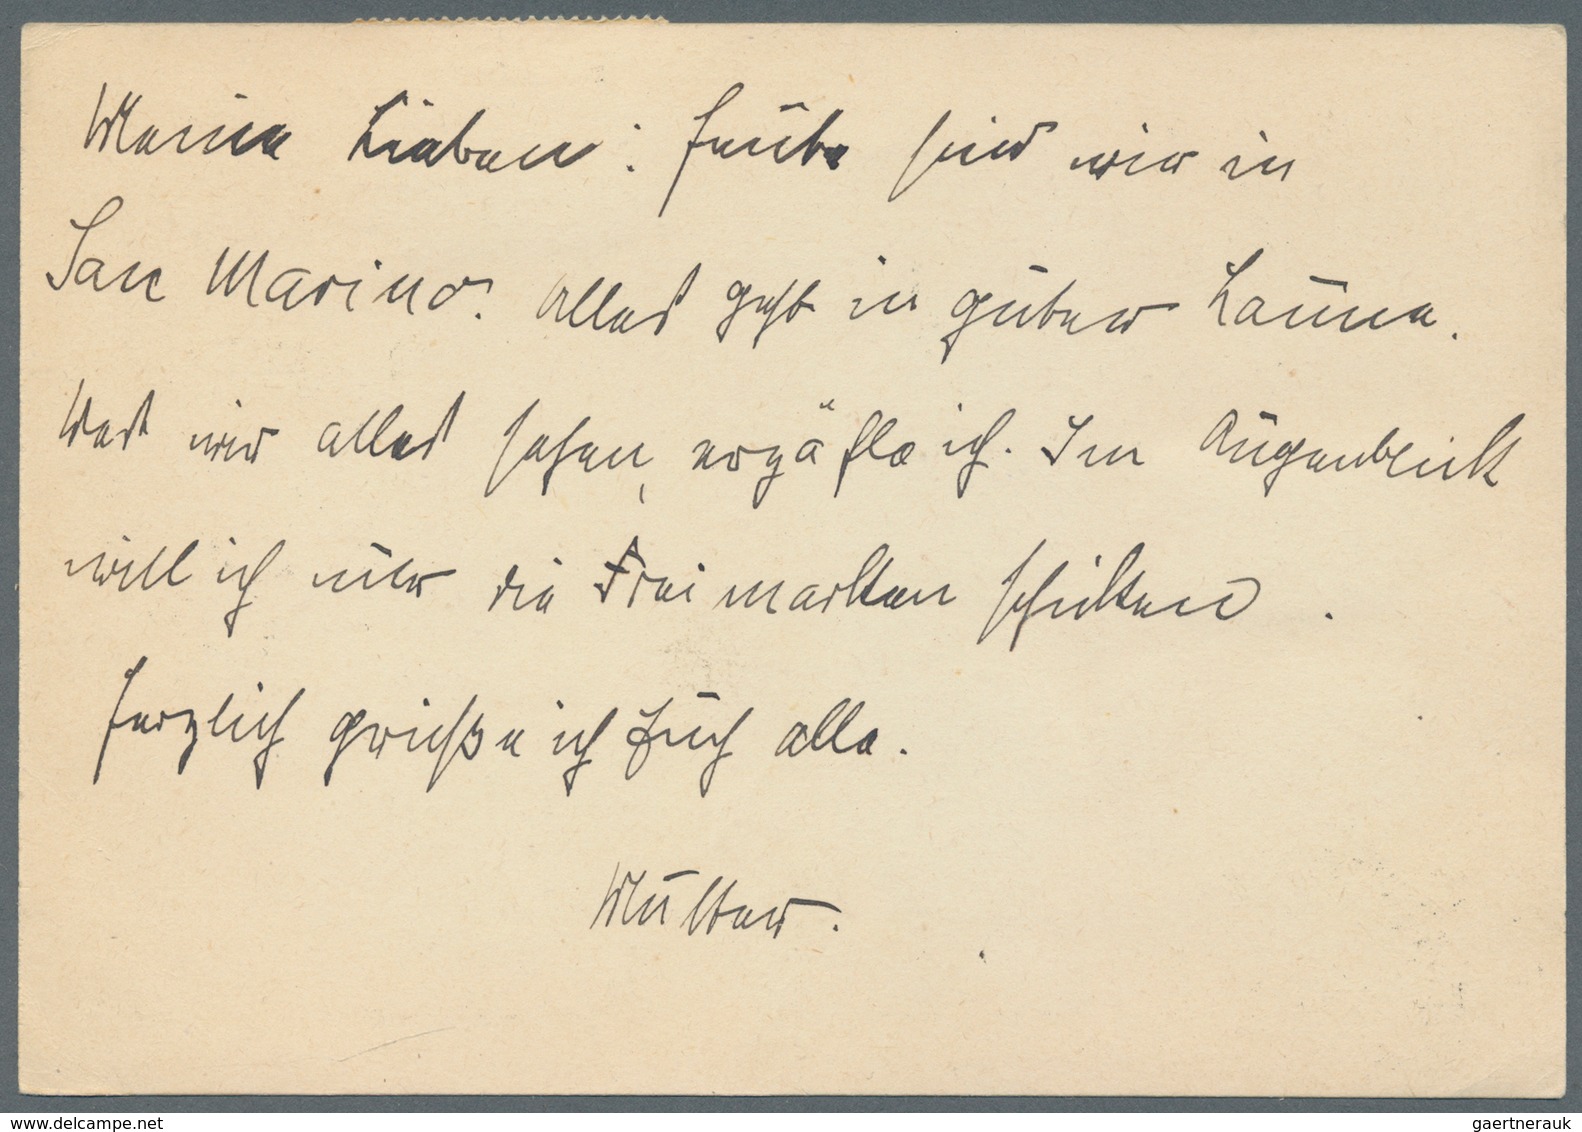 Meine Lieben: heute sind wir in
San Marino. Alles geht in guter Laune.
Was wir alles sehen, erzähle ich. Im Augenblick
will ich nur die Freimarken schicken.
Herzlich grüße ich Euch alle.
Mutter.
www.delcampe.net
gaertnerauk